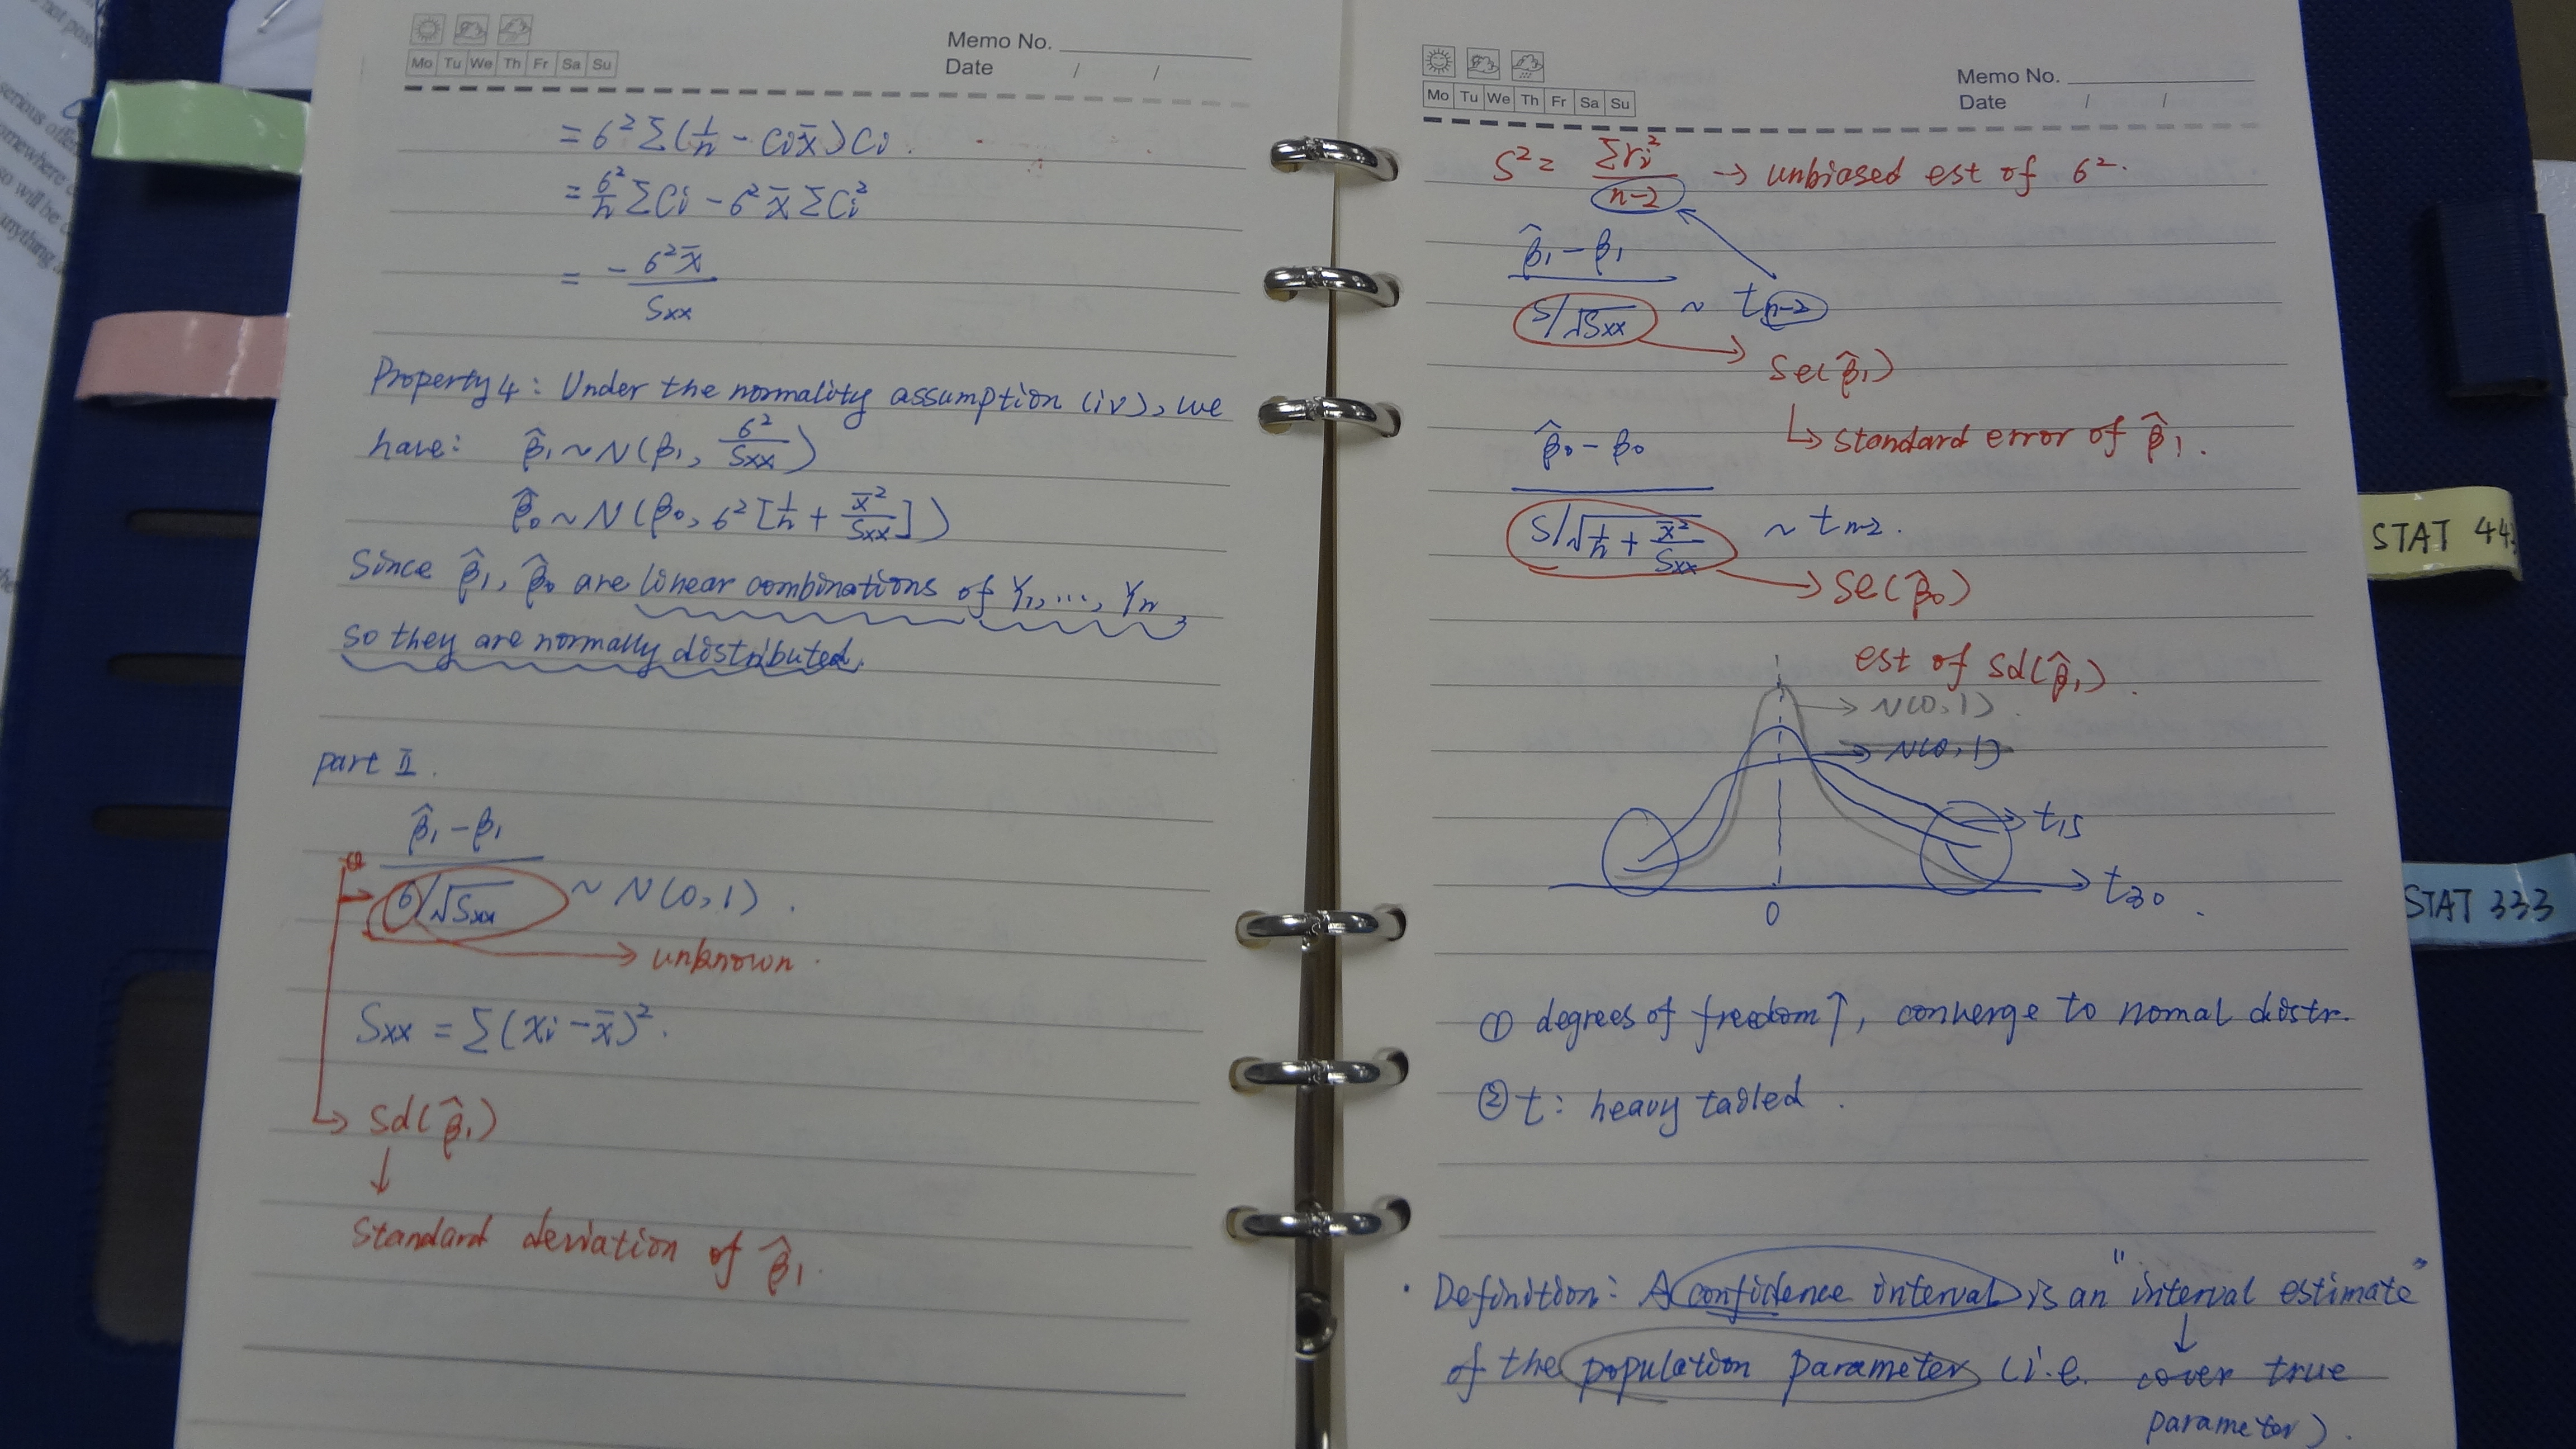 Memo No.
Mo Tu We Th Fr Sa Su
Date / /
= 6² Σ(1/n - Cix̄)Ci.
= 6²/n ΣCi - 6² x̄ ΣCi²
= - 6²x̄ / Sxx
Property 4: Under the normality assumption (iv), we
have: β̂₁ ~ N(β₁, 6²/Sxx)
β̂₀ ~ N(β₀, 6²[1/n + x̄²/Sxx])
Since β̂₁, β̂₀ are linear combinations of Y₁, ..., Yn,
so they are normally distributed.
part II.
β̂₁ - β₁
6/√Sxx ~ N(0,1).
→ unknown.
Sxx = Σ(xi - x̄)².
→ sd(β̂₁)
↓
Standard deviation of β̂₁.
Memo No.
Mo Tu We Th Fr Sa Su
Date / /
S² = Σri² / n-2 → unbiased est of 6².
β̂₁ - β₁
S/√Sxx ~ tn-2
→ Se(β̂₁)
↳ standard error of β̂₁.
β̂₀ - β₀
S/√1/n + x̄²/Sxx ~ tn-2.
→ Se(β̂₀)
est of sd(β̂₁).
→ N(0,1).
→ N(0,1)
→ t15
→ t30.
0
① degrees of freedom↑, converge to nomal distr.
② t: heavy tailed.
· Definition: A confidence interval is an "interval estimate"
↓
of the population parameter (i.e. cover true
parameter).
STAT 333